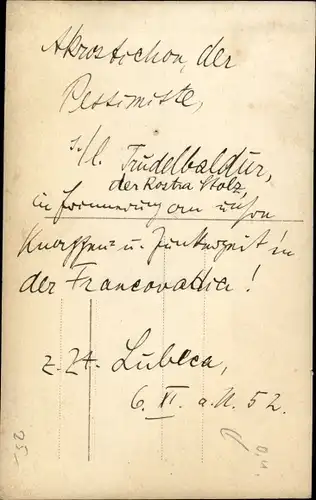 Akrostichon, der
Pessimiste,
s./l. Trudelbaldur,
der Rostra Stolz,
in Erinnerung an unsre
Knappen- u. Junkerzeit in
der Francovallia!
z. Zt. Lubeca,
6. XI. a. U. 52.
25,
D.U.